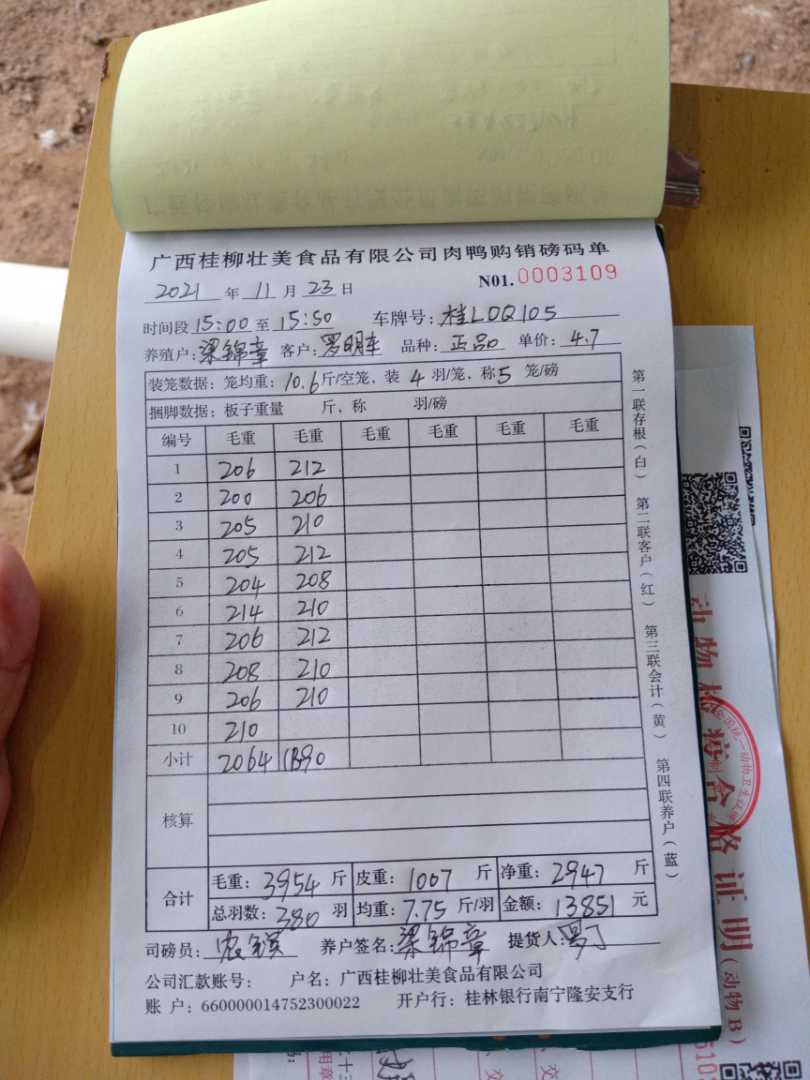 广西桂柳壮美食品有限公司肉鸭购销磅码单
2021 年 11 月 23 日 N01.0003109
时间段 15:00 至 15:50 车牌号: 桂LDQ105
养殖户: 梁锦章 客户: 罗明丰 品种: 正品 单价: 4.7
装笼数据: 笼均重: 10.6 斤/空笼, 装 4 羽/笼, 称 5 笼/磅
捆脚数据: 板子重量 斤, 称 羽/磅
编号 毛重 毛重 毛重 毛重 毛重 毛重
1 206 212
2 200 206
3 205 210
4 205 212
5 204 208
6 214 210
7 206 212
8 208 210
9 206 210
10 210
小计 2064 1890
核算
合计 毛重: 3954 斤 皮重: 1007 斤 净重: 2947 斤
总羽数: 380 羽 均重: 7.75 斤/羽 金额: 13851 元
司磅员: 养户签名: 梁锦章 提货人:
公司汇款账号: 户名: 广西桂柳壮美食品有限公司
账 户: 660000014752300022 开户行: 桂林银行南宁隆安支行
第一联存根(白) 第二联客户(红) 第三联会计(黄) 第四联养户(蓝)
动物检疫合格证明(动物B)